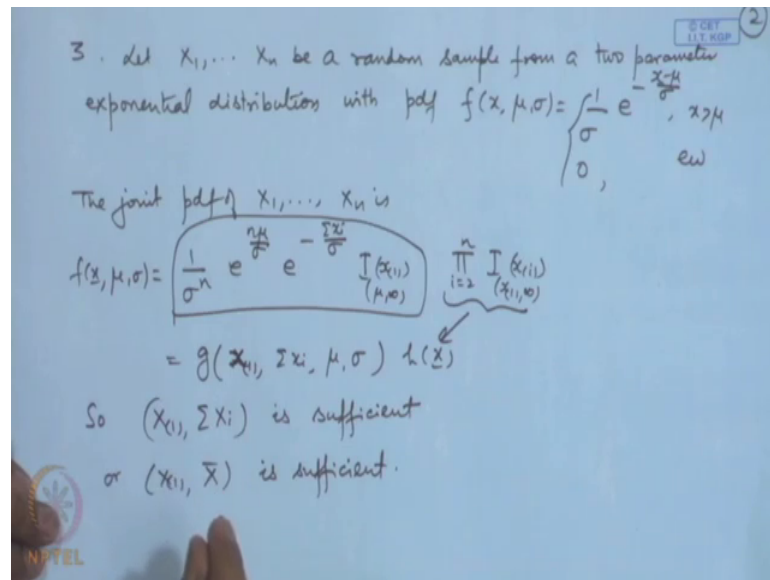 © CET
I.I.T. KGP
2
3. Let X₁, ... Xₙ be a random sample from a two parameter
exponential distribution with pdf f(x, μ, σ) = { 1/σ e^{-(x-μ)/σ}, x>μ
0, ew
The joint pdf of X₁, ..., Xₙ is
f(x, μ, σ) = 1/σⁿ e^{nμ/σ} e^{-Σxi/σ} I(x₍₁₎) (μ,∞) ∏_{i=2}^{n} I(x₍ᵢ₎) (x₍₁₎,∞)
= g(x₍₁₎, Σxi, μ, σ) h(x)
So (X₍₁₎, ΣXi) is sufficient
or (X₍₁₎, X̄) is sufficient.
NPTEL